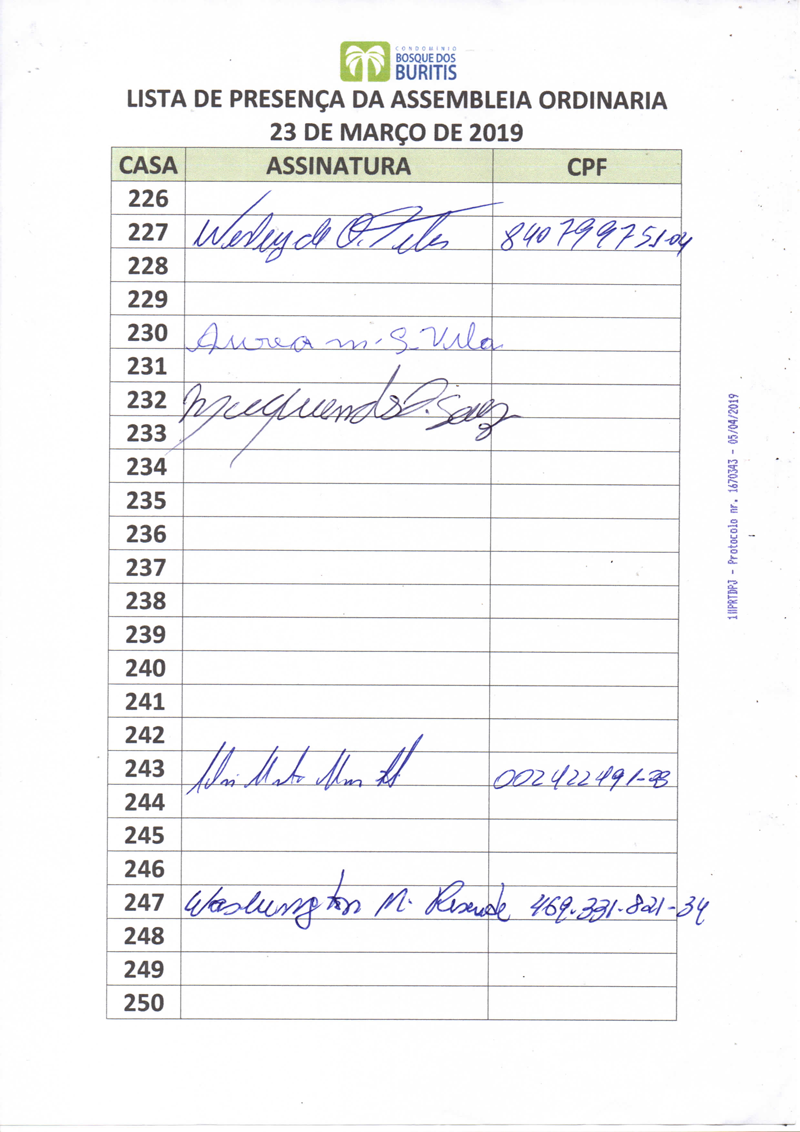 CONDOMÍNIO
BOSQUE DOS
BURITIS
LISTA DE PRESENÇA DA ASSEMBLEIA ORDINARIA
23 DE MARÇO DE 2019
CASA ASSINATURA CPF
226
227 Wesley de O. Teles 840799751-04
228
229
230 Aurea m. S. Vila
231
232
233
234
235
236
237
238
239
240
241
242
243 002422491-
244
245
246
247 Washington M. Resende 469.331.821-34
248
249
250
1ºRTDPJ - Protocolo nr. 1670343 - 05/04/2019